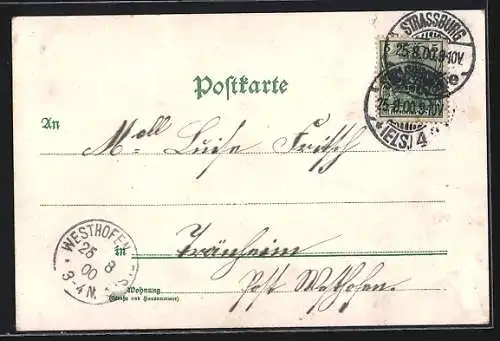 STRASSBURG
25.8.00.9-10V.
Postkarte
25.8.00.9-10V.
(ELS.) 4
An
Mell Luise Fritsch
WESTHOFEN
25 8
00
3-4N.
in Tränheim
Post Westhofen.
Wohnung
(Straße und Hausnummer)